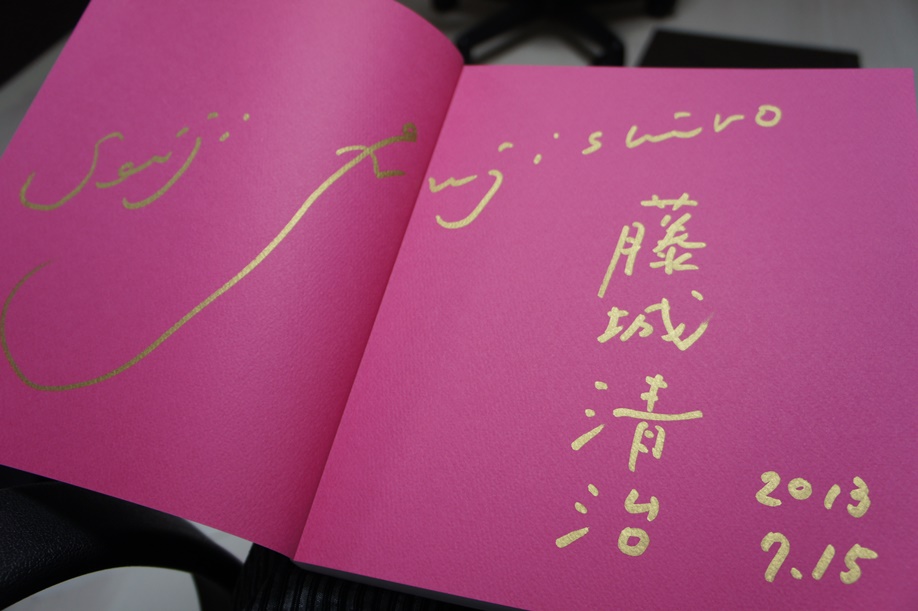 Seiji Fujishiro
藤城清治
2013
7.15